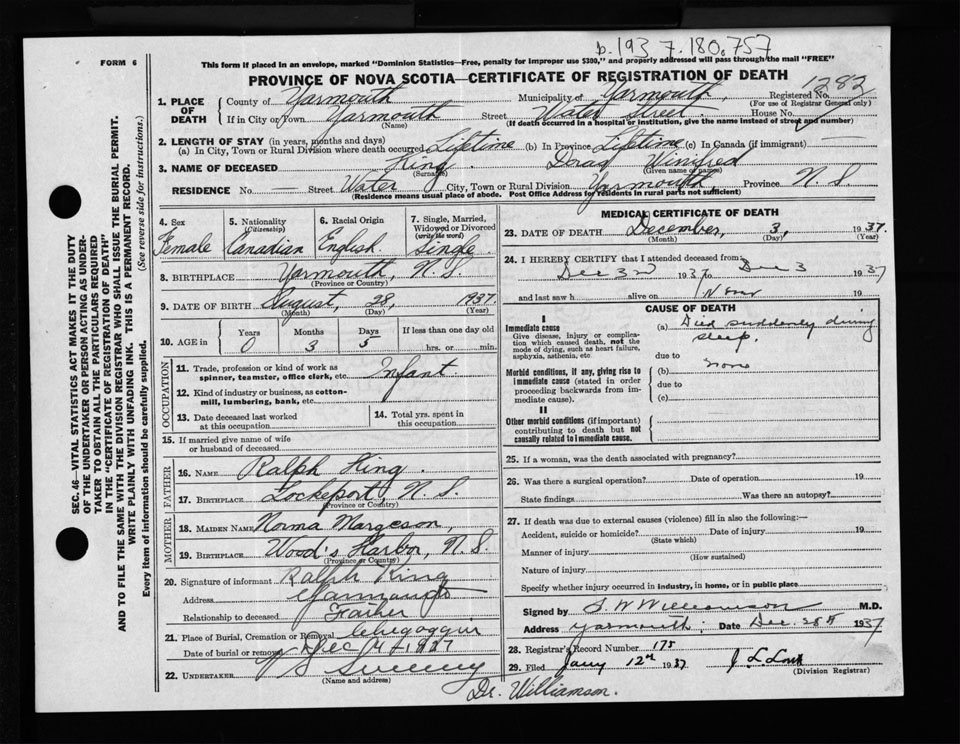 b.193.7.180.757
FORM 6
This form if placed in an envelope, marked "Dominion Statistics—Free, penalty for improper use $300," and properly addressed will pass through the mail "FREE"
PROVINCE OF NOVA SCOTIA—CERTIFICATE OF REGISTRATION OF DEATH
1282
1. PLACE OF DEATH County of Yarmouth Municipality of Yarmouth, Registered No.
(For use of Registrar General only)
If in City or Town Yarmouth Street Water Street House No.
(Name) (If death occurred in a hospital or institution, give the name instead of street and number)
2. LENGTH OF STAY (in years, months and days)
(a) In City, Town or Rural Division where death occurred Lifetime (b) In Province Lifetime (c) In Canada (if immigrant)
3. NAME OF DECEASED King Winifred
(Surname) (Given name or names)
RESIDENCE No. — Street Water City, Town or Rural Division Yarmouth, Province N. S.
(Residence means usual place of abode. Post Office Address for residents in rural parts not sufficient)
4. Sex Female
5. Nationality (Citizenship) Canadian
6. Racial Origin English.
7. Single, Married, Widowed or Divorced (write the word) Single
8. BIRTHPLACE Yarmouth, N. S.
(Province or Country)
9. DATE OF BIRTH August, 28, 1937.
(Month) (Day) (Year)
10. AGE in Years 0 Months 3 Days 5 If less than one day old
hrs. or min.
OCCUPATION
11. Trade, profession or kind of work as spinner, teamster, office clerk, etc. Infant.
12. Kind of industry or business, as cotton-mill, lumbering, bank, etc.
13. Date deceased last worked at this occupation
14. Total yrs. spent in this occupation
15. If married give name of wife or husband of deceased
FATHER
16. NAME Ralph King.
17. BIRTHPLACE Lockeport, N. S.
(Province or Country)
MOTHER
18. MAIDEN NAME Norma Margeson,
19. BIRTHPLACE Wood's Harbor, N. S.
(Province or Country)
20. Signature of informant Ralph King
Address Yarmouth
Relationship to deceased Father
21. Place of Burial, Cremation or Removal Chegoggin
Date of burial or removal Dec 1937
22. UNDERTAKER Sweeny
(Name and address)
Dr. Williamson.
MEDICAL CERTIFICATE OF DEATH
23. DATE OF DEATH December, 3, 1937.
(Month) (Day) (Year)
24. I HEREBY CERTIFY that I attended deceased from
Dec 3rd 1937 to Dec 3 1937
and last saw h alive on 19
CAUSE OF DEATH
I
Immediate cause
Give disease, injury or complication which caused death, not the mode of dying, such as heart failure, asphyxia, asthenia, etc.
(a) Died suddenly during
sleep.
due to
Morbid conditions, if any, giving rise to immediate cause (stated in order proceeding backwards from immediate cause).
(b) none
due to
(c)
II
Other morbid conditions (if important) contributing to death but not causally related to immediate cause.
25. If a woman, was the death associated with pregnancy?
26. Was there a surgical operation? Date of operation 19
State findings Was there an autopsy?
27. If death was due to external causes (violence) fill in also the following:—
Accident, suicide or homicide? Date of injury 19
(State which)
Manner of injury
(How sustained)
Nature of injury
Specify whether injury occurred in industry, in home, or in public place
Signed by S. W Williamson M.D.
Address Yarmouth, Date Dec. 28th 1937
28. Registrar's Record Number 175
29. Filed Jany 12th 1937
(Division Registrar)
SEC. 46—VITAL STATISTICS ACT MAKES IT THE DUTY
OF THE UNDERTAKER OR PERSON ACTING AS UNDER-
TAKER TO OBTAIN ALL THE PARTICULARS REQUIRED
IN THE "CERTIFICATE OF REGISTRATION OF DEATH"
AND TO FILE THE SAME WITH THE DIVISION REGISTRAR WHO SHALL ISSUE THE BURIAL PERMIT.
WRITE PLAINLY WITH UNFADING INK. THIS IS A PERMANENT RECORD.
Every item of information should be carefully supplied. (See reverse side for instructions.)